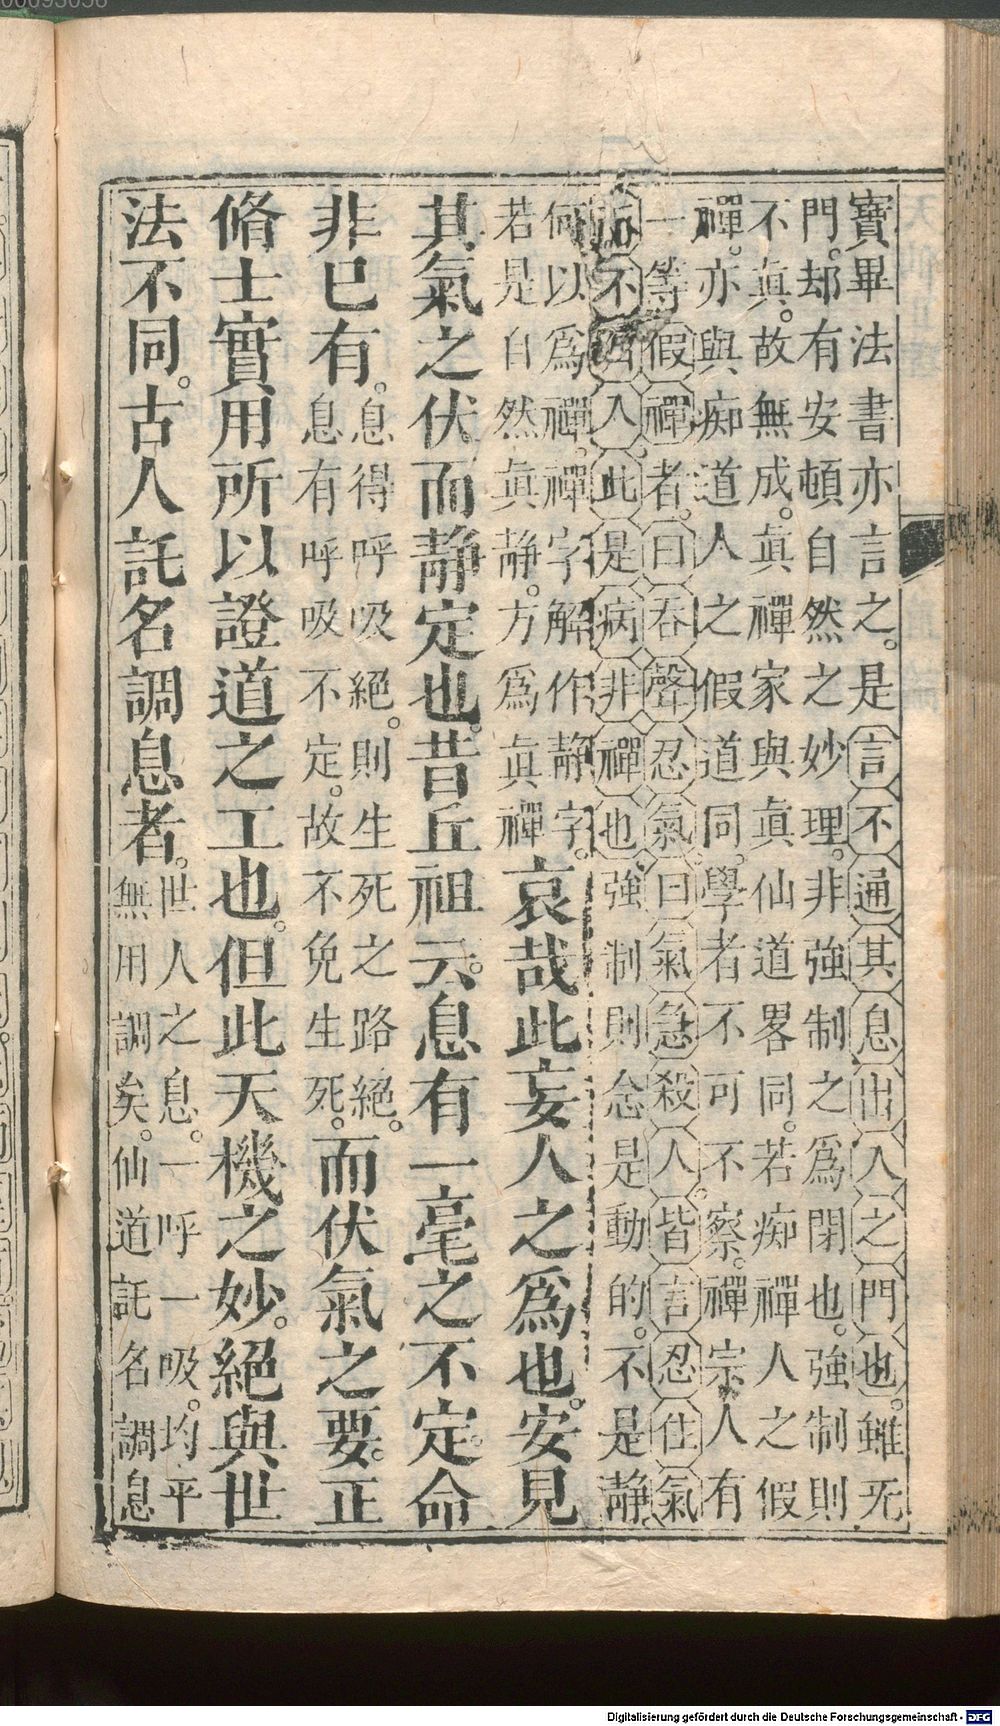 寶畢法書亦言之。是言不通其息出入之門也。雖无
門。却有安頓自然之妙理。非強制之爲閉也。強制則
不眞。故無成。眞禪家與眞仙道畧同。若痴禪人之假
禪。亦與痴道人之假道同。學者不可不察。禪宗人有
一等假禪者。曰吞聲忍氣。曰氣急殺人。皆言忍住氣
不 入此是病非禪也強制則念是動的。不是靜
何以爲禪。禪字解作靜字。
若是自然眞靜。方爲眞禪
哀哉此妄人之爲也。安見
其氣之伏而靜定也。昔丘祖云。息有一毫之不定。命
非巳有。
息得呼吸絕。則生死之路絕。
息有呼吸不定。故不免生死。
而伏氣之要。正
脩士實用所以證道之工也。但此天機之妙。絕與世
法不同。古人託名調息者。
世人之息。一呼一吸。均平
無用調矣。仙道託名調息
Digitalisierung gefördert durch die Deutsche Forschungsgemeinschaft - DFG